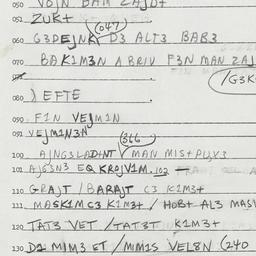 050 VOJN BAM ZAJD+
051 ZUK+
(047)
060 G3DEJNK, D3 ALT3 BAB3
070 BAK1M3N A BRIV F3N MAN ZAJ
(G3K
080 ) EFTE
090 F1N VEJM1N
091 VEJM1N3N
(366)
100 AJNG3LADNT / MAN MIS+PUX3
101 EQ KROJV1M. 102
110 GRAJT / BARAJT C3 K1M3+
111 MASK1M C3 K1M3+ / HOB+ AL3 MAS
120 TAT3 VET / TAT3T K1M3+
130 D1 MIM3 ET / MIM1S VEL8N (240